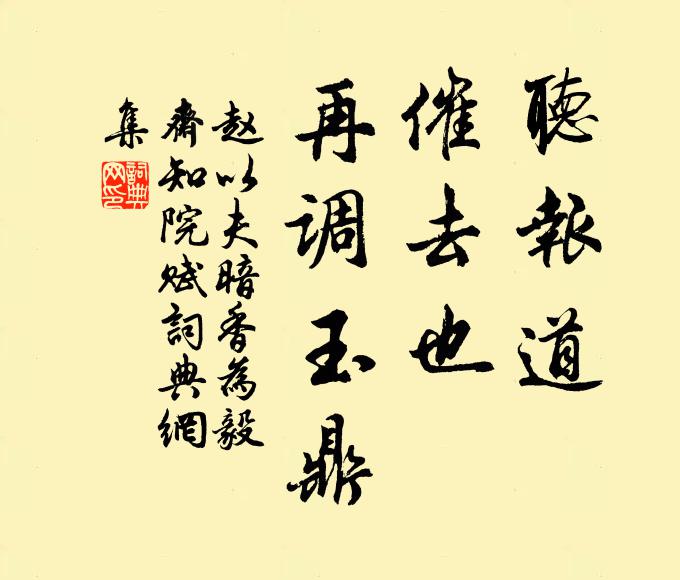 聽報道
催去也
再调玉鼎
赵以夫暗香為毅
齋知院赋詞典網
集
詞典網印